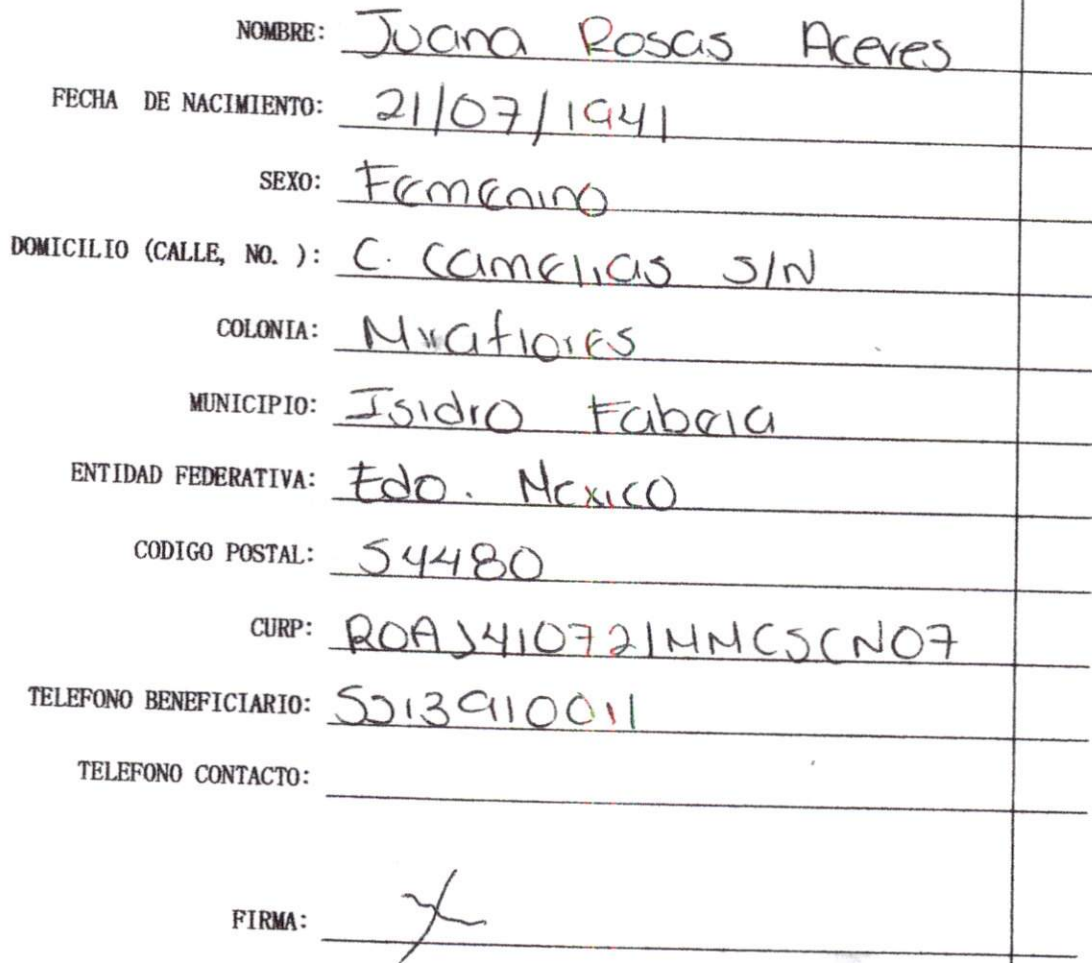 NOMBRE: Juana Rosas Aceves
FECHA DE NACIMIENTO: 21/07/1941
SEXO: Femenino
DOMICILIO (CALLE, NO. ): C. Camelias S/N
COLONIA: Miraflores
MUNICIPIO: Isidro Fabela
ENTIDAD FEDERATIVA: Edo. Mexico
CODIGO POSTAL: 54480
CURP: ROAJ410721MMCSCN07
TELEFONO BENEFICIARIO: 5513910011
TELEFONO CONTACTO:
FIRMA: